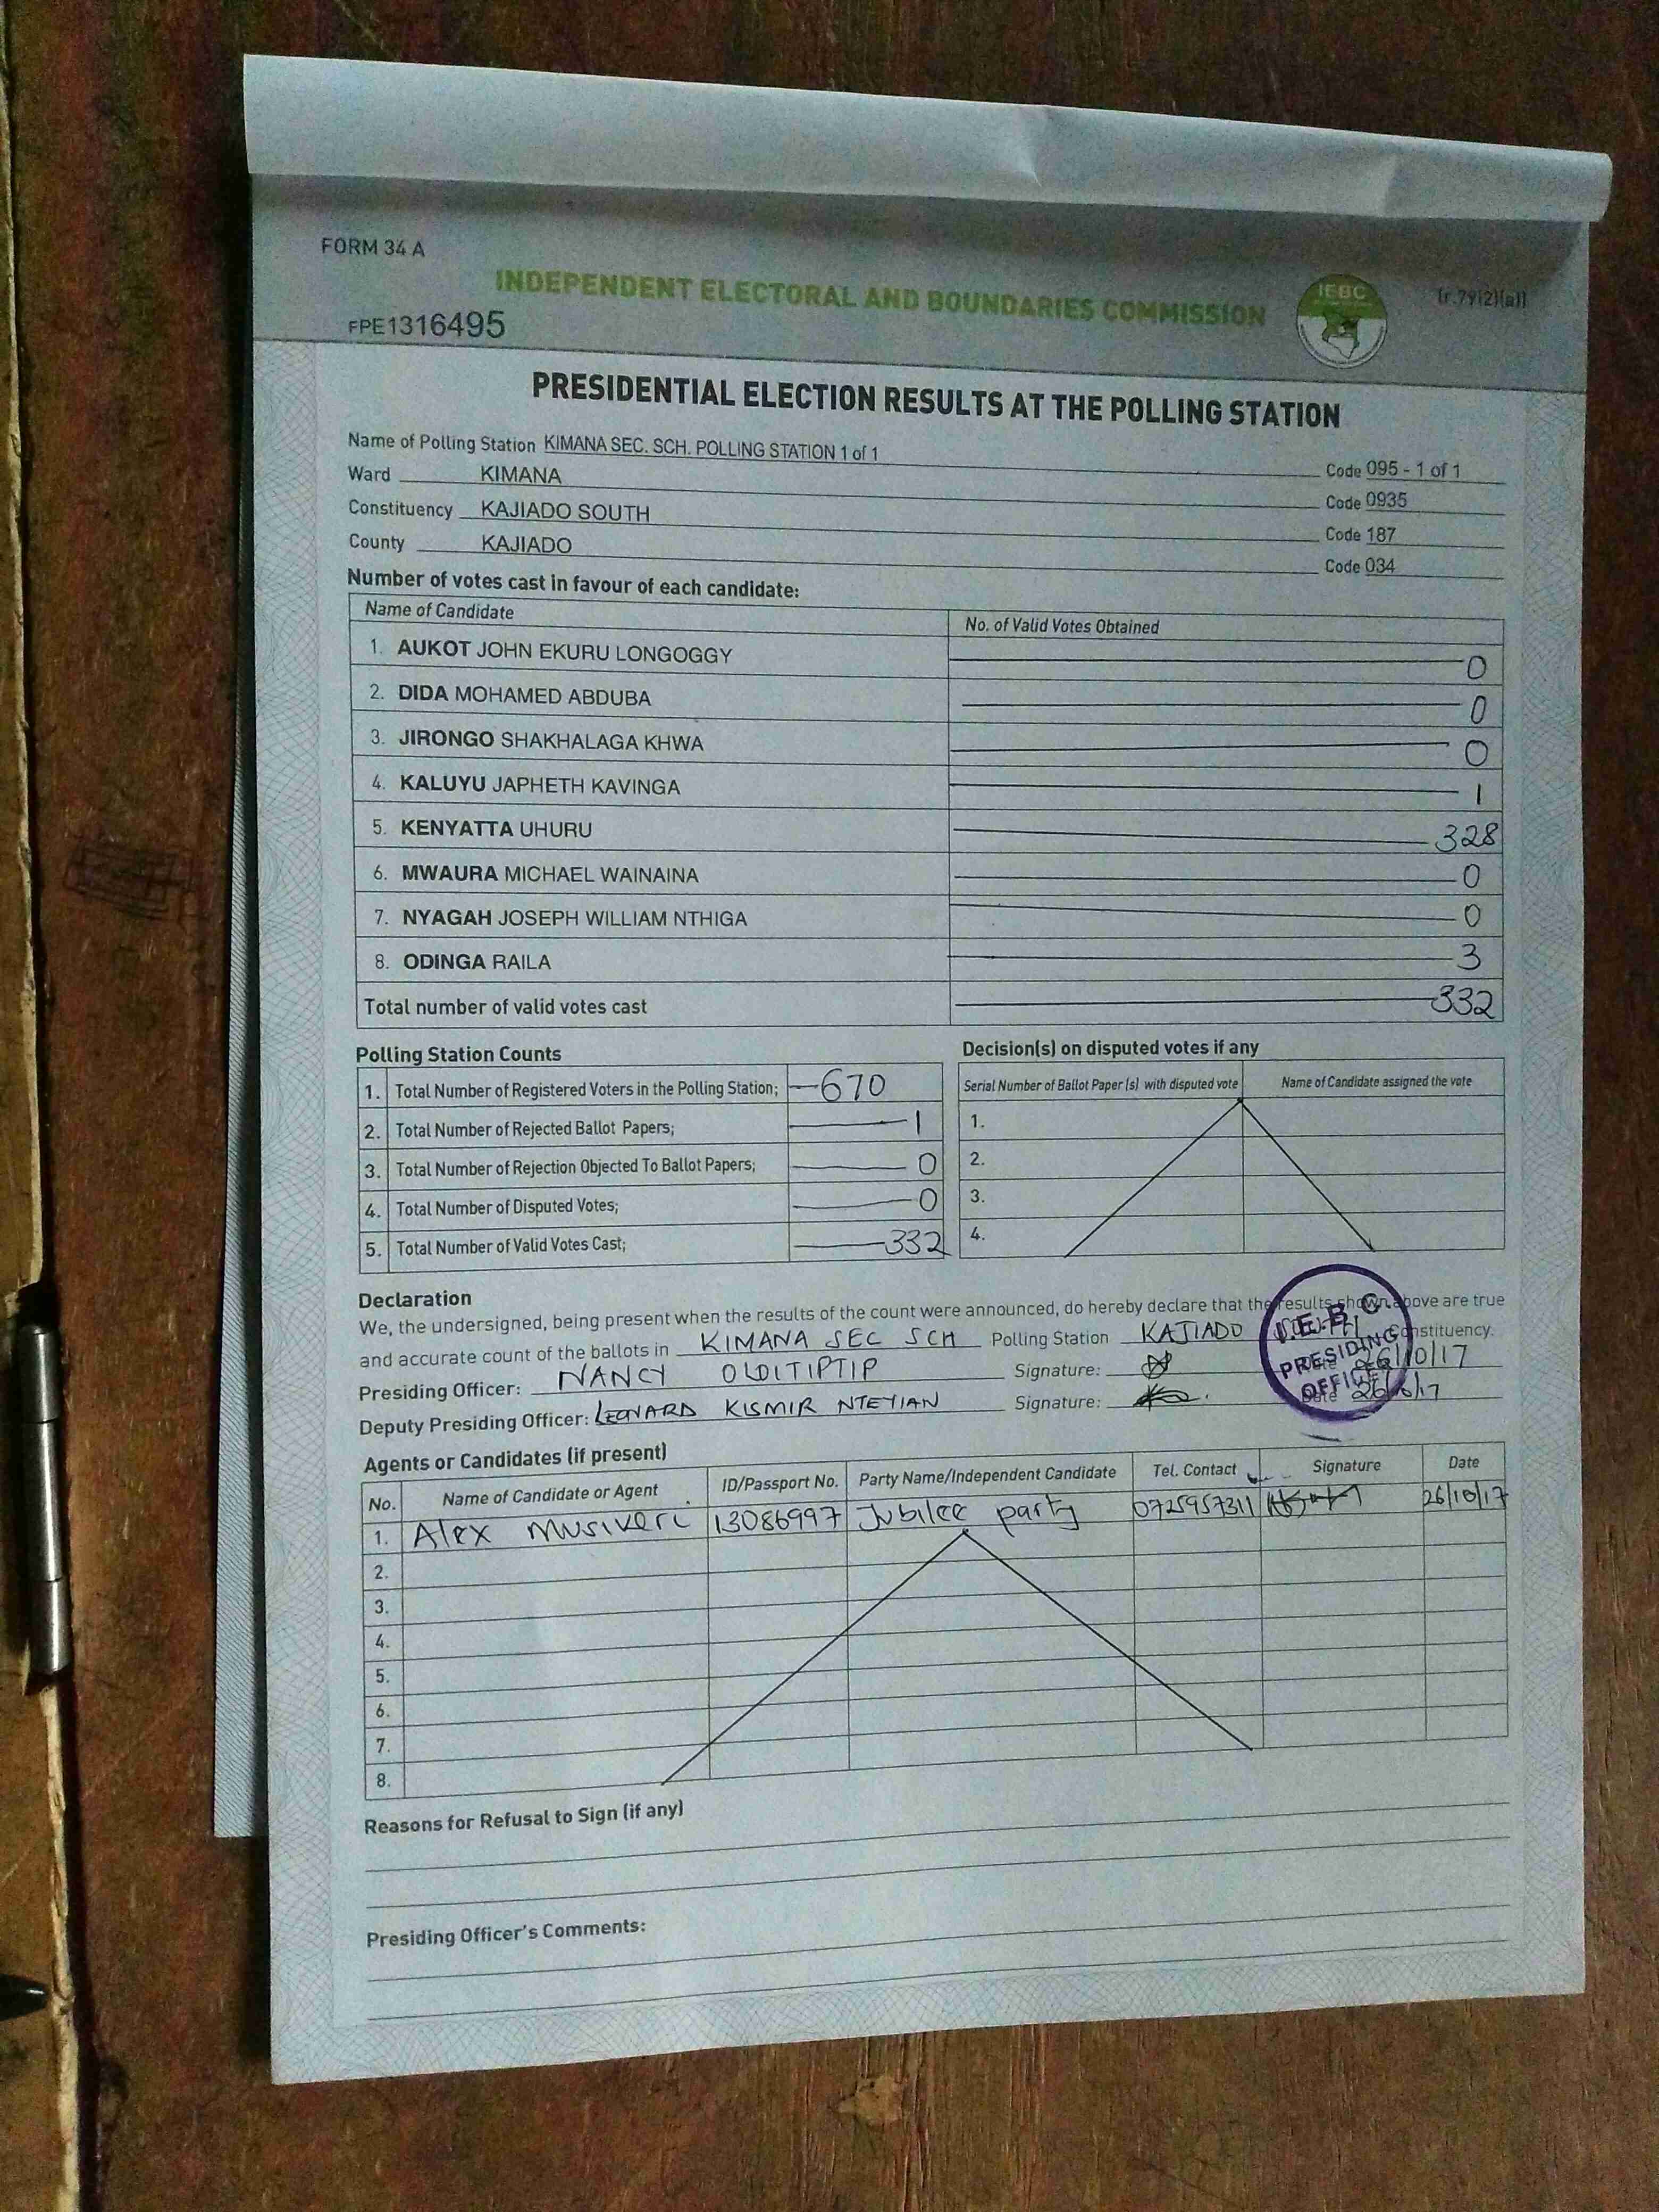 FORM 34 A
INDEPENDENT ELECTORAL AND BOUNDARIES COMMISSION
IEBC
(r.79(2)(a))
FPE1316495
PRESIDENTIAL ELECTION RESULTS AT THE POLLING STATION
Name of Polling Station KIMANA SEC. SCH. POLLING STATION 1 of 1 Code 095 - 1 of 1
Ward KIMANA Code 0935
Constituency KAJIADO SOUTH Code 187
County KAJIADO Code 034
Number of votes cast in favour of each candidate:
Name of Candidate No. of Valid Votes Obtained
1. AUKOT JOHN EKURU LONGOGGY 0
2. DIDA MOHAMED ABDUBA 0
3. JIRONGO SHAKHALAGA KHWA 0
4. KALUYU JAPHETH KAVINGA 1
5. KENYATTA UHURU 328
6. MWAURA MICHAEL WAINAINA 0
7. NYAGAH JOSEPH WILLIAM NTHIGA 0
8. ODINGA RAILA 3
Total number of valid votes cast 332
Polling Station Counts
1. Total Number of Registered Voters in the Polling Station; 670
2. Total Number of Rejected Ballot Papers; 1
3. Total Number of Rejection Objected To Ballot Papers; 0
4. Total Number of Disputed Votes; 0
5. Total Number of Valid Votes Cast; 332
Decision(s) on disputed votes if any
Serial Number of Ballot Paper (s) with disputed vote Name of Candidate assigned the vote
1.
2.
3.
4.
Declaration
We, the undersigned, being present when the results of the count were announced, do hereby declare that the results shown above are true
and accurate count of the ballots in KIMANA SEC SCH Polling Station KAJIADO SOUTH Constituency.
Presiding Officer: NANCY OLOITIPTIP Signature: Date 26/10/17
Deputy Presiding Officer: LEONARD KISMIR NTEYIAN Signature: Date 26/10/17
I.E.B.C
PRESIDING
OFFICER
Agents or Candidates (if present)
No. Name of Candidate or Agent ID/Passport No. Party Name/Independent Candidate Tel. Contact Signature Date
1. Alex 13086997 Jubilee party 0725957311 26/10/17
2.
3.
4.
5.
6.
7.
8.
Reasons for Refusal to Sign (if any)
Presiding Officer's Comments: